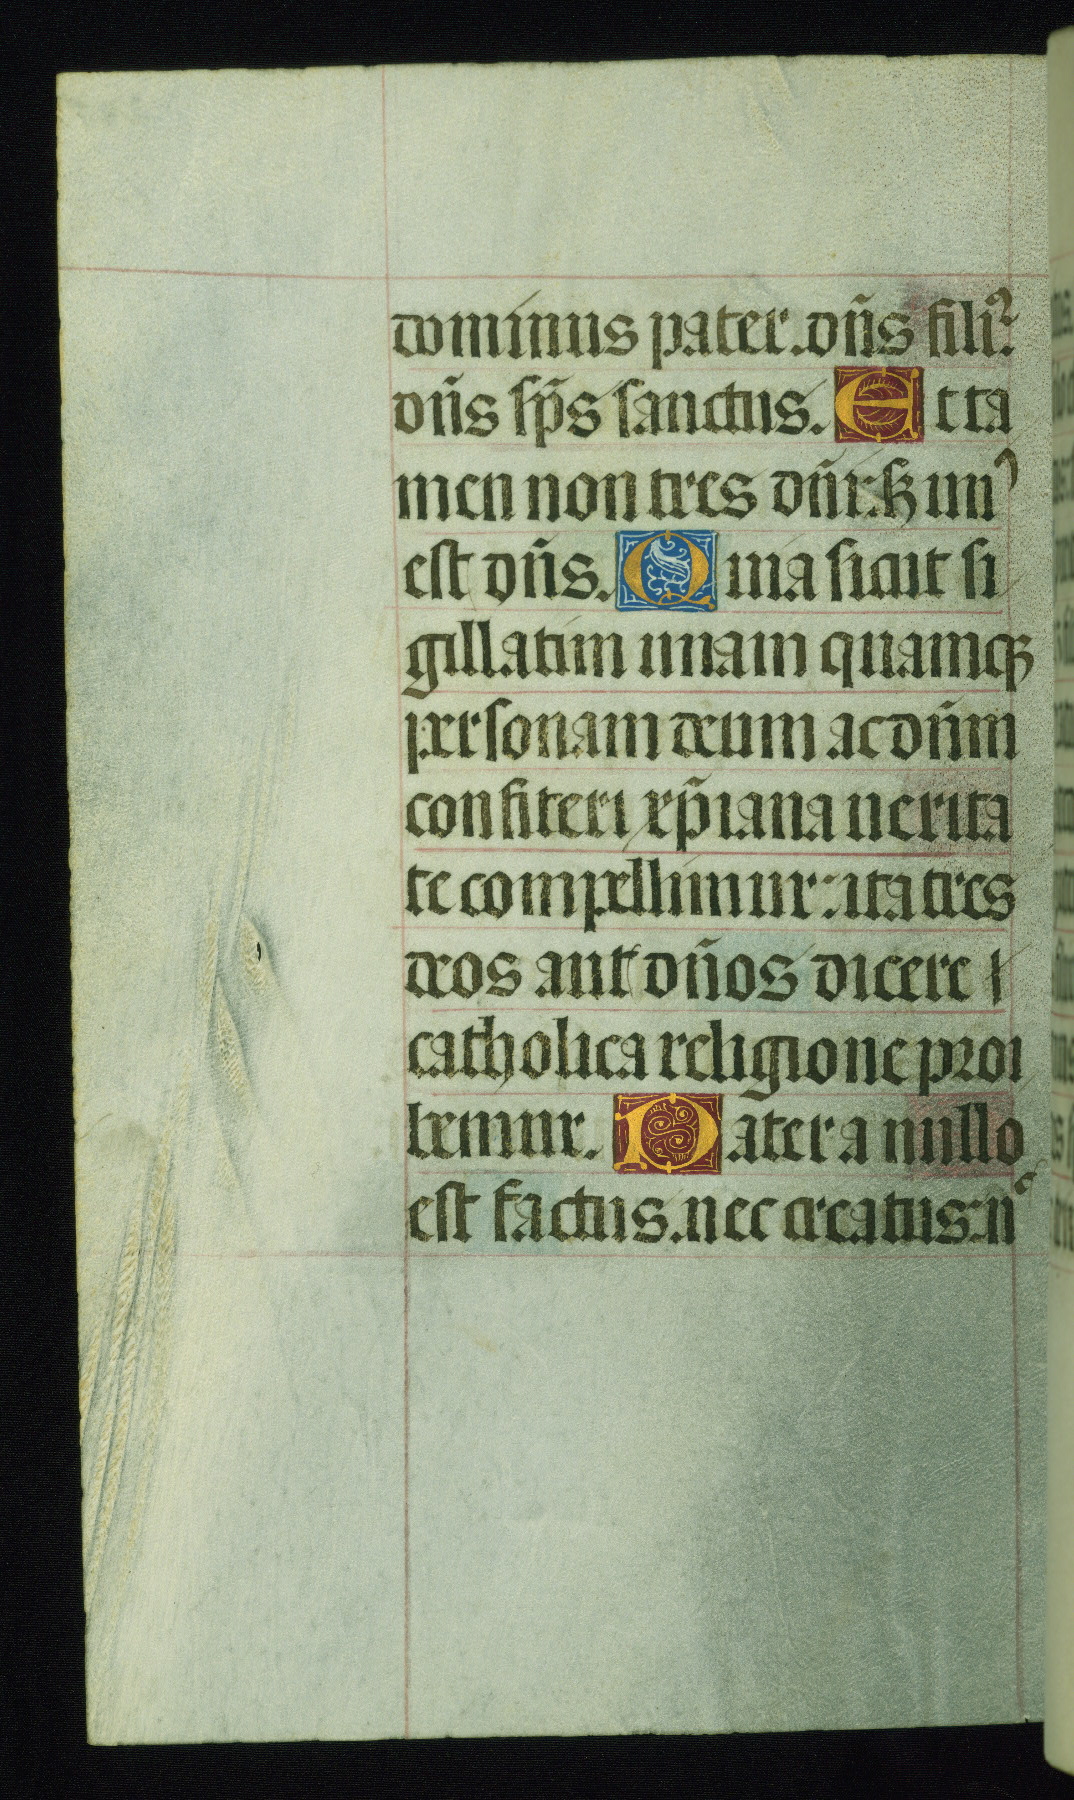 dominus pater. dñs filiꝰ:
dñs sp̃s sanctus. Et ta
men non tres dñi: sꝫ unꝰ
est dñs. Quia sicut si
gillatim unam quamqꝫ
personam deum ac dñm
confiteri xp̃iana uerita
te compellimur: ita tres
deos aut dños dicere
catholica religione proi
bemur. Pater a nullo
est factus. nec creatus: nͨ